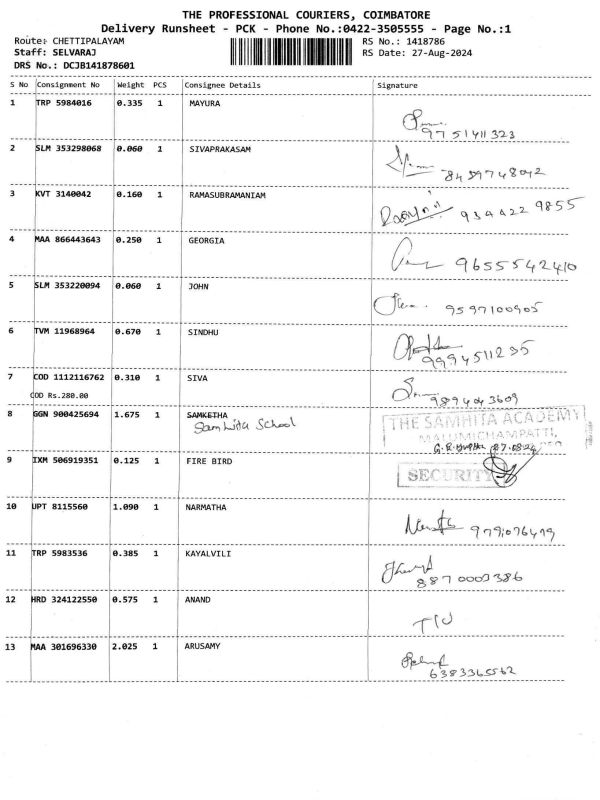 THE PROFESSIONAL COURIERS, COIMBATORE
Delivery Runsheet - PCK - Phone No.:0422-3505555 - Page No.:1
Route: CHETTIPALAYAM RS No.: 1418786
Staff: SELVARAJ RS Date: 27-Aug-2024
DRS No.: DCJB141878601
S No Consignment No Weight PCS Consignee Details Signature
1 TRP 5984016 0.335 1 MAYURA
9751411323
2 SLM 353298068 0.060 1 SIVAPRAKASAM
8459748042
3 KVT 3140042 0.160 1 RAMASUBRAMANIAM
9344229855
4 MAA 866443643 0.250 1 GEORGIA
9655542410
5 SLM 353220094 0.060 1 JOHN
9597100905
6 TVM 11968964 0.670 1 SINDHU
9994511235
7 COD 1112116762 0.310 1 SIVA
COD Rs.280.00 9894043609
8 GGN 900425694 1.675 1 SAMKETHA
Samhita School
THE SAMHITA ACADEMY
MALUMICHAMPATTI,
9 IXM 506919351 0.125 1 FIRE BIRD
SECURITY
10 UPT 8115560 1.090 1 NARMATHA
9791076479
11 TRP 5983536 0.385 1 KAYALVILI
8870003386
12 HRD 324122550 0.575 1 ANAND
13 MAA 301696330 2.025 1 ARUSAMY
6383365562